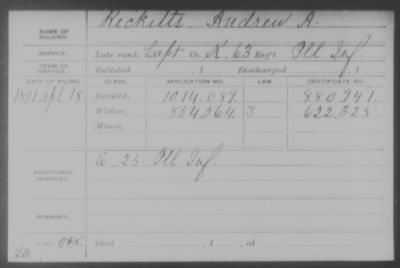 NAME OF SOLDIER: Ricketts, Andrew A.
SERVICE: Late rank, Capt Co. K, 63 Reg't Ill Inf
TERM OF SERVICE: Enlisted , 1 Discharged , 1
DATE OF FILING. CLASS. APPLICATION NO. LAW. CERTIFICATE NO.
1891 Apl 18 Invalid, 1014.089. 880.941.
Widow, 854.364. J 622.325
Minor,
ADDITIONAL SERVICES: E. 25 Ill Inf
REMARKS:
Died , 1 , at